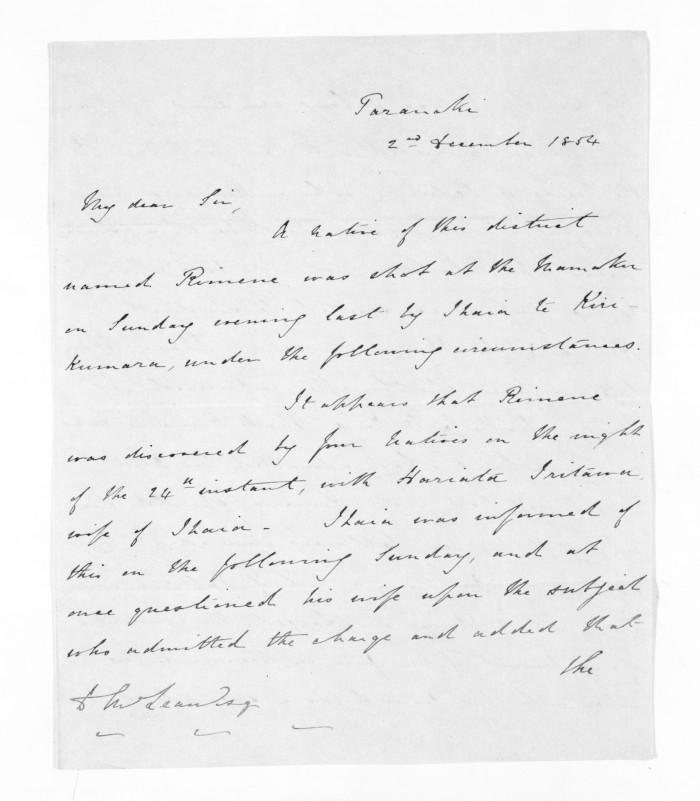 Taranaki
2nd December 1854
My dear Sir,
A native of this district
named Rimene was shot at the Mamaku
on Sunday evening last by Ihaia te Kiri-
Kumara, under the following circumstances.
It appears that Rimene
was discovered by four natives on the night
of the 24th instant, with Hariata
wife of Ihaia - Ihaia was informed of
this on the following Sunday, and at
once questioned his wife upon the subject
who admitted the charge and added that
she
D McLean Esq